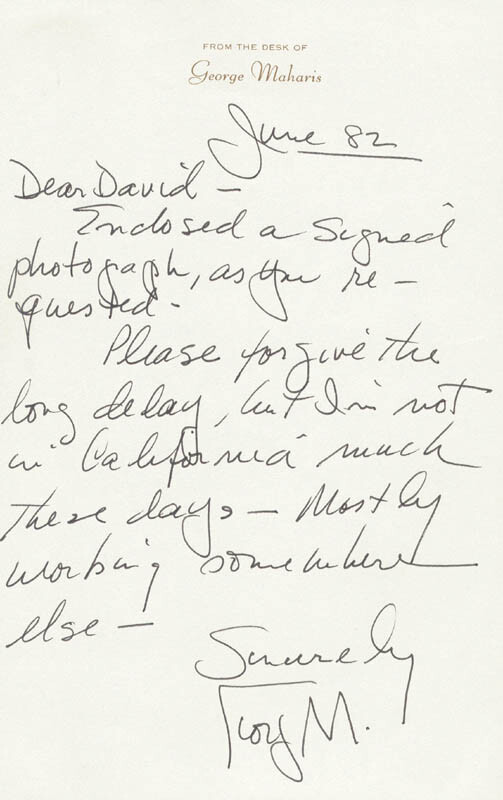 FROM THE DESK OF
George Maharis
June 82
Dear David —
Enclosed a signed
photograph, as you re -
quested -
Please forgive the
long delay, but I'm not
in California much
these days — Mostly
working somewhere
else —
Sincerely
M.